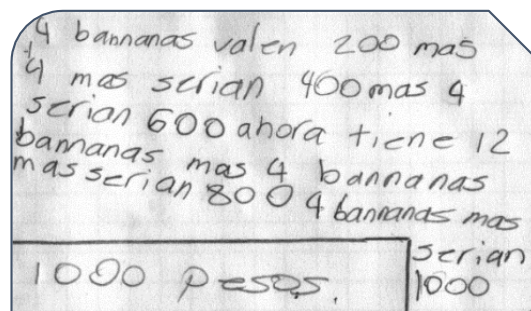 4 bannanas valen 200 mas
+
4 mas serian 400 mas 4
serian 600 ahora tiene 12
bannanas mas 4 bannanas
mas serian 800 4 bannanas mas
serian
1000
1000 pesos.